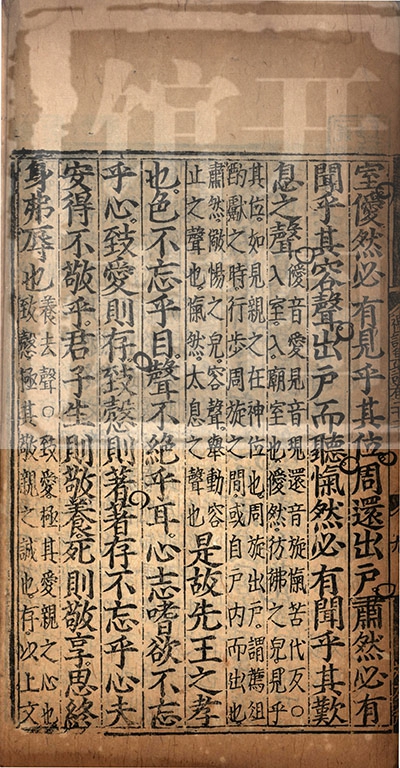 室僾然必有見乎其位周還出戶肅然必有
聞乎其容聲出戶而聽愾然必有聞乎其歎
息之聲僾音愛見音現還音旋愾苦代反○
入室入廟室也僾然彷彿之皃見乎
其位如見親之在神位也周旋出戶謂薦俎
酌獻之時行步周旋之間或自戶內而出也
肅然儆惕之皃容聲舉動容
止之聲也愾然太息之聲也是故先王之孝
也色不忘乎目聲不絕乎耳心志嗜欲不忘
乎心致愛則存致慤則著著存不忘乎心夫
安得不敬乎君子生則敬養死則敬享思終
身弗辱也養去聲○致愛極其愛親之心也
致慤極其敬親之誠也存以上文